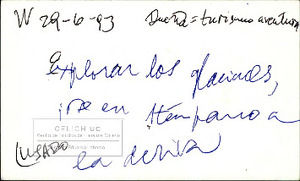 W 29-6-93 Dueña = turismo aventura
Explorar los glaciares,
irse en témpano a
la deriva
CELICH UC
(USADO)